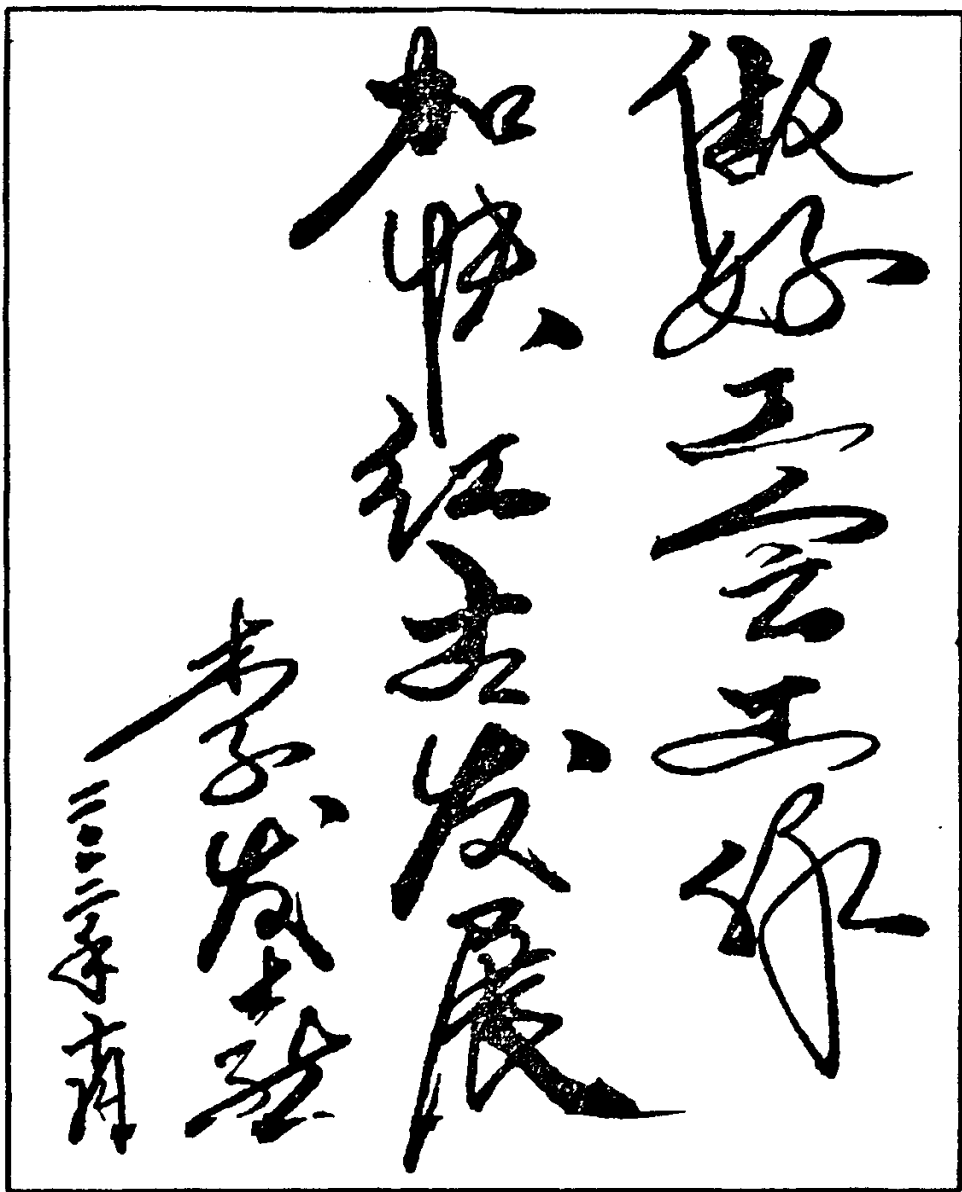 做好工会工作
加快红古发展
李发
二〇〇二年十月